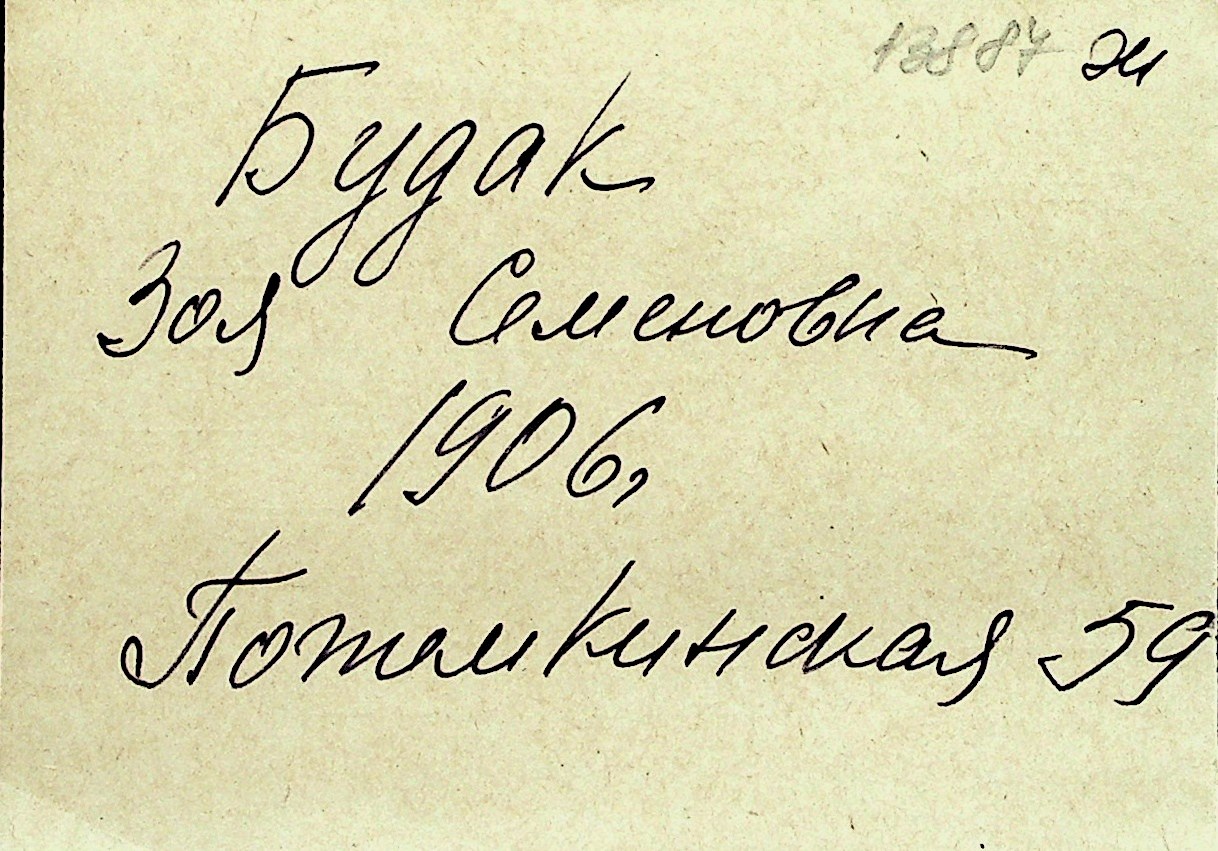 13887 ж
Будак
Зоя Семеновна
1906,
Потемкинская 59